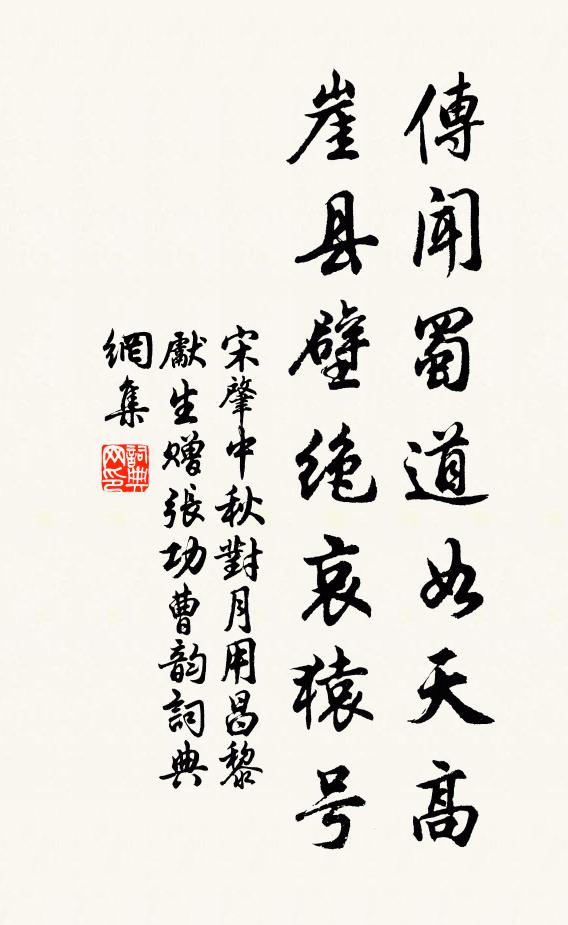 傳聞蜀道如天高
崖县壁绝哀猿号
宋肇中秋對月用昌黎
獻生贈張功曹韵詞典
網集
詞典网印